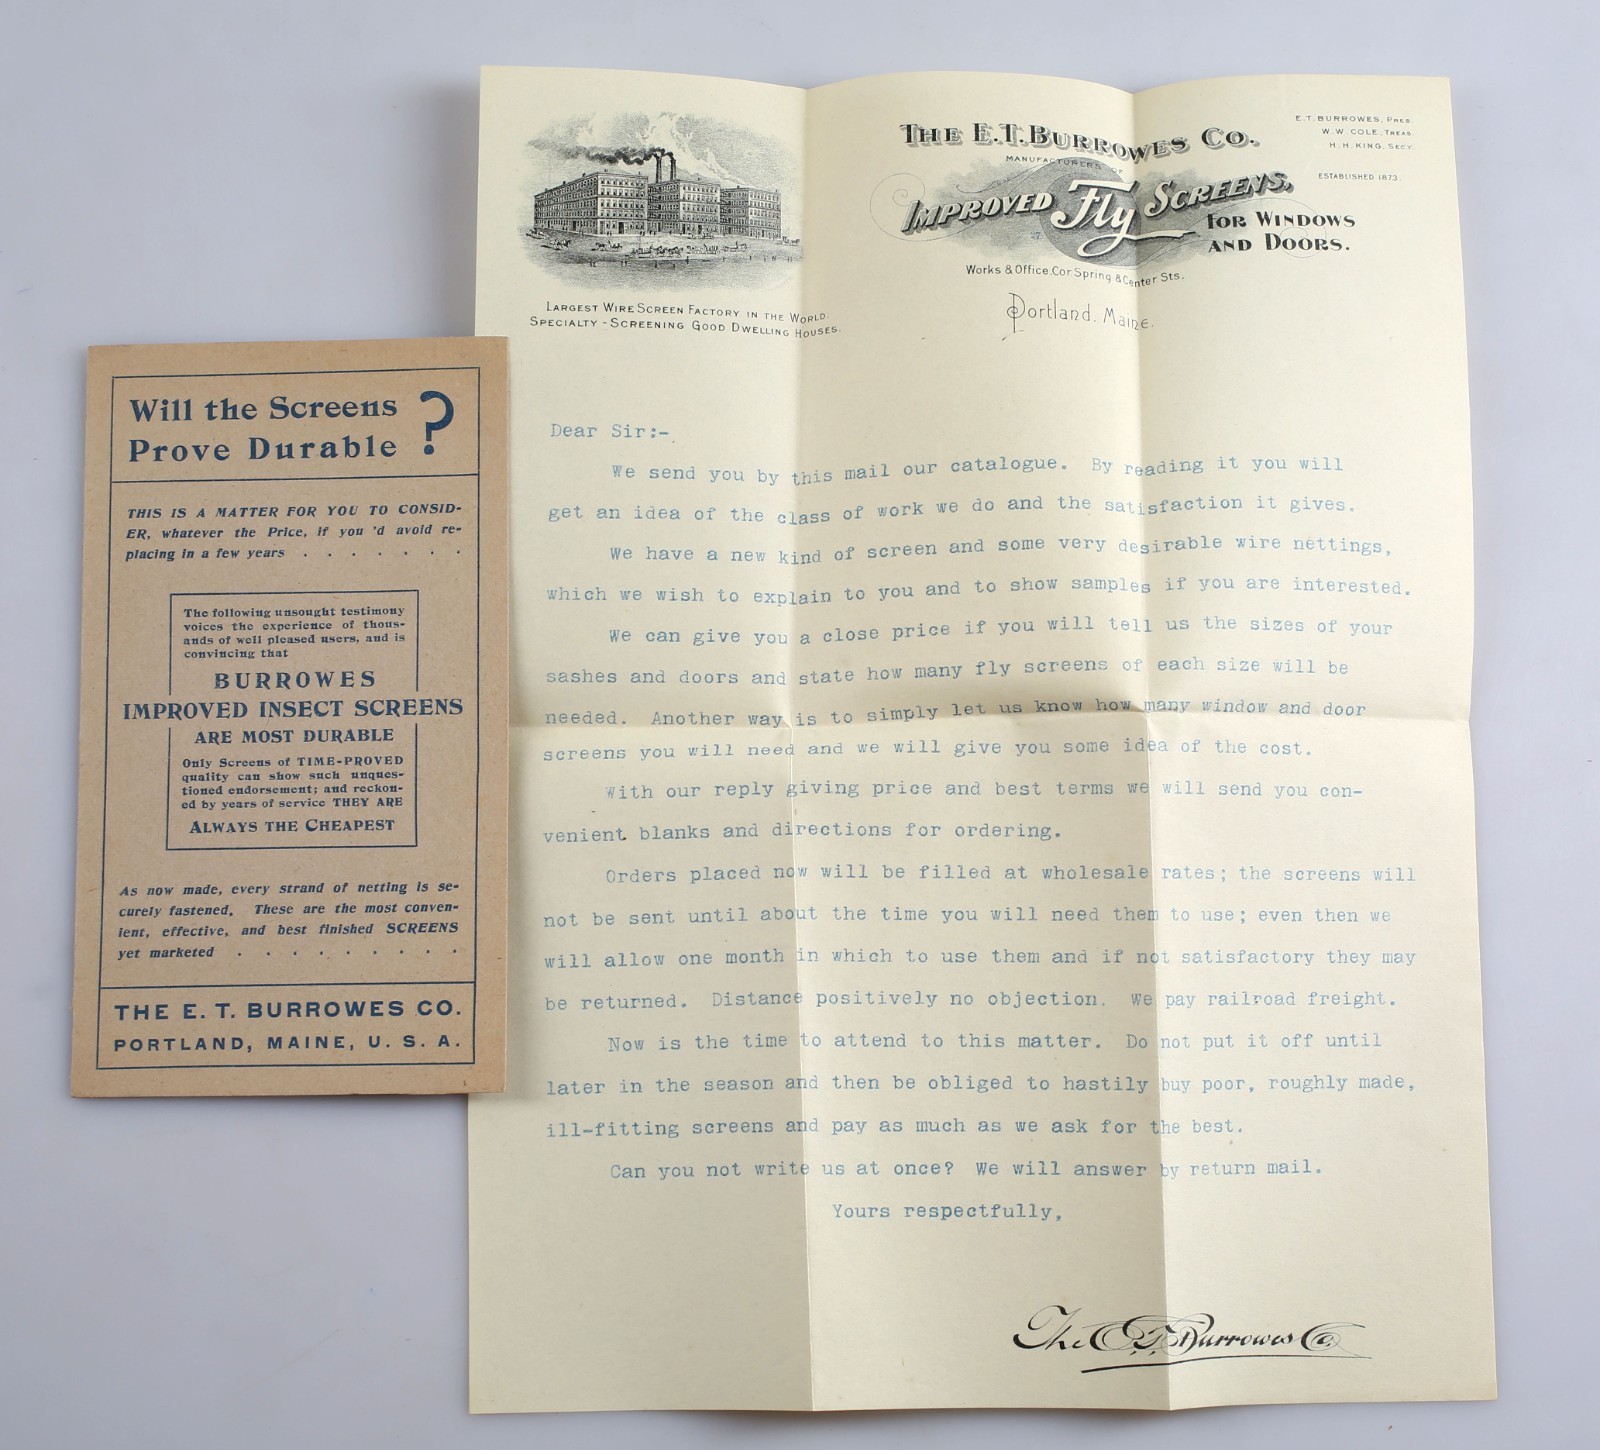 Will the Screens
Prove Durable ?
THIS IS A MATTER FOR YOU TO CONSID-
ER, whatever the Price, if you 'd avoid re-
placing in a few years . . . . . . .
The following unsought testimony
voices the experience of thous-
ands of well pleased users, and is
convincing that
BURROWES
IMPROVED INSECT SCREENS
ARE MOST DURABLE
Only Screens of TIME-PROVED
quality can show such unques-
tioned endorsement; and reckon-
ed by years of service THEY ARE
ALWAYS THE CHEAPEST
As now made, every strand of netting is se-
curely fastened. These are the most conven-
ient, effective, and best finished SCREENS
yet marketed . . . . . . . . .
THE E. T. BURROWES CO.
PORTLAND, MAINE, U. S. A.
LARGEST WIRE SCREEN FACTORY IN THE WORLD.
SPECIALTY - SCREENING GOOD DWELLING HOUSES.
THE E.T. BURROWES CO.
MANUFACTURERS OF
IMPROVED Fly SCREENS,
FOR WINDOWS
AND DOORS.
Works & Office. Cor Spring & Center Sts.
Portland. Maine.
E.T. BURROWES, PRES.
W.W. COLE, TREAS.
H.H. KING, SECY.
ESTABLISHED 1873.
Dear Sir:-
We send you by this mail our catalogue. By reading it you will
get an idea of the class of work we do and the satisfaction it gives.
We have a new kind of screen and some very desirable wire nettings,
which we wish to explain to you and to show samples if you are interested.
We can give you a close price if you will tell us the sizes of your
sashes and doors and state how many fly screens of each size will be
needed. Another way is to simply let us know how many window and door
screens you will need and we will give you some idea of the cost.
With our reply giving price and best terms we will send you con-
venient blanks and directions for ordering.
Orders placed now will be filled at wholesale rates; the screens will
not be sent until about the time you will need them to use; even then we
will allow one month in which to use them and if not satisfactory they may
be returned. Distance positively no objection. We pay railroad freight.
Now is the time to attend to this matter. Do not put it off until
later in the season and then be obliged to hastily buy poor, roughly made,
ill-fitting screens and pay as much as we ask for the best.
Can you not write us at once? We will answer by return mail.
Yours respectfully,
The E.T. Burrowes Co.